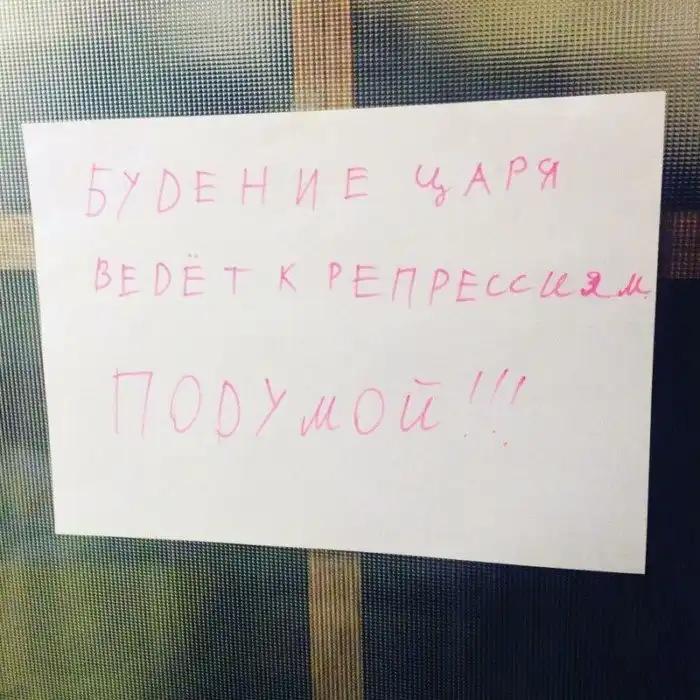 БУДЕНИЕ ЦАРЯ
ВЕДЁТ К РЕПРЕССИЯМ
ПОДУМОЙ!!!